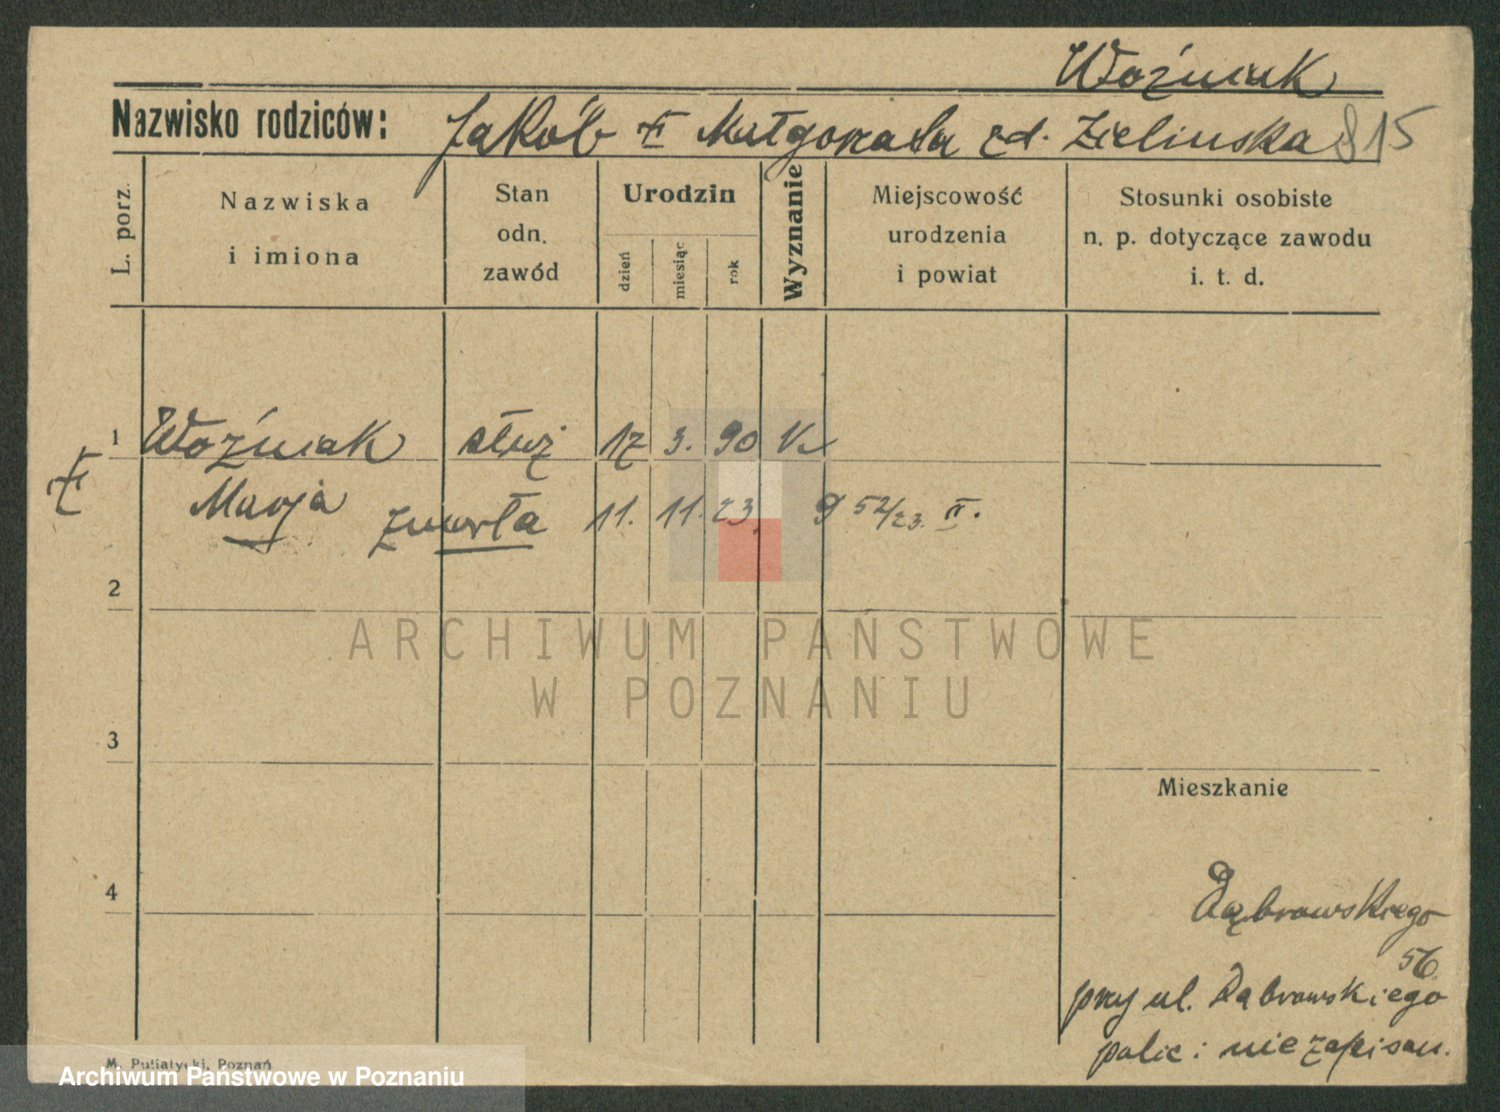 Woźniak
Nazwisko rodziców: Jakób i Małgorzata zd. Zielinska 815
L. porz.
Nazwiska
i imiona
Stan
odn.
zawód
Urodzin
dzień
miesiąc
rok
Wyznanie
Miejscowość
urodzenia
i powiat
Stosunki osobiste
n. p. dotyczące zawodu
i. t. d.
1 Woźniak służ 17 3. 90
Marja zmarła 11. 11. 23. 952/23. II.
2
ARCHIWUM PAŃSTWOWE
W POZNANIU
3
Mieszkanie
4
Dąbrowskiego
56
przy ul. Dąbrowskiego
nie zapisan.
M. Putiatycki, Poznań
Archiwum Państwowe w Poznaniu